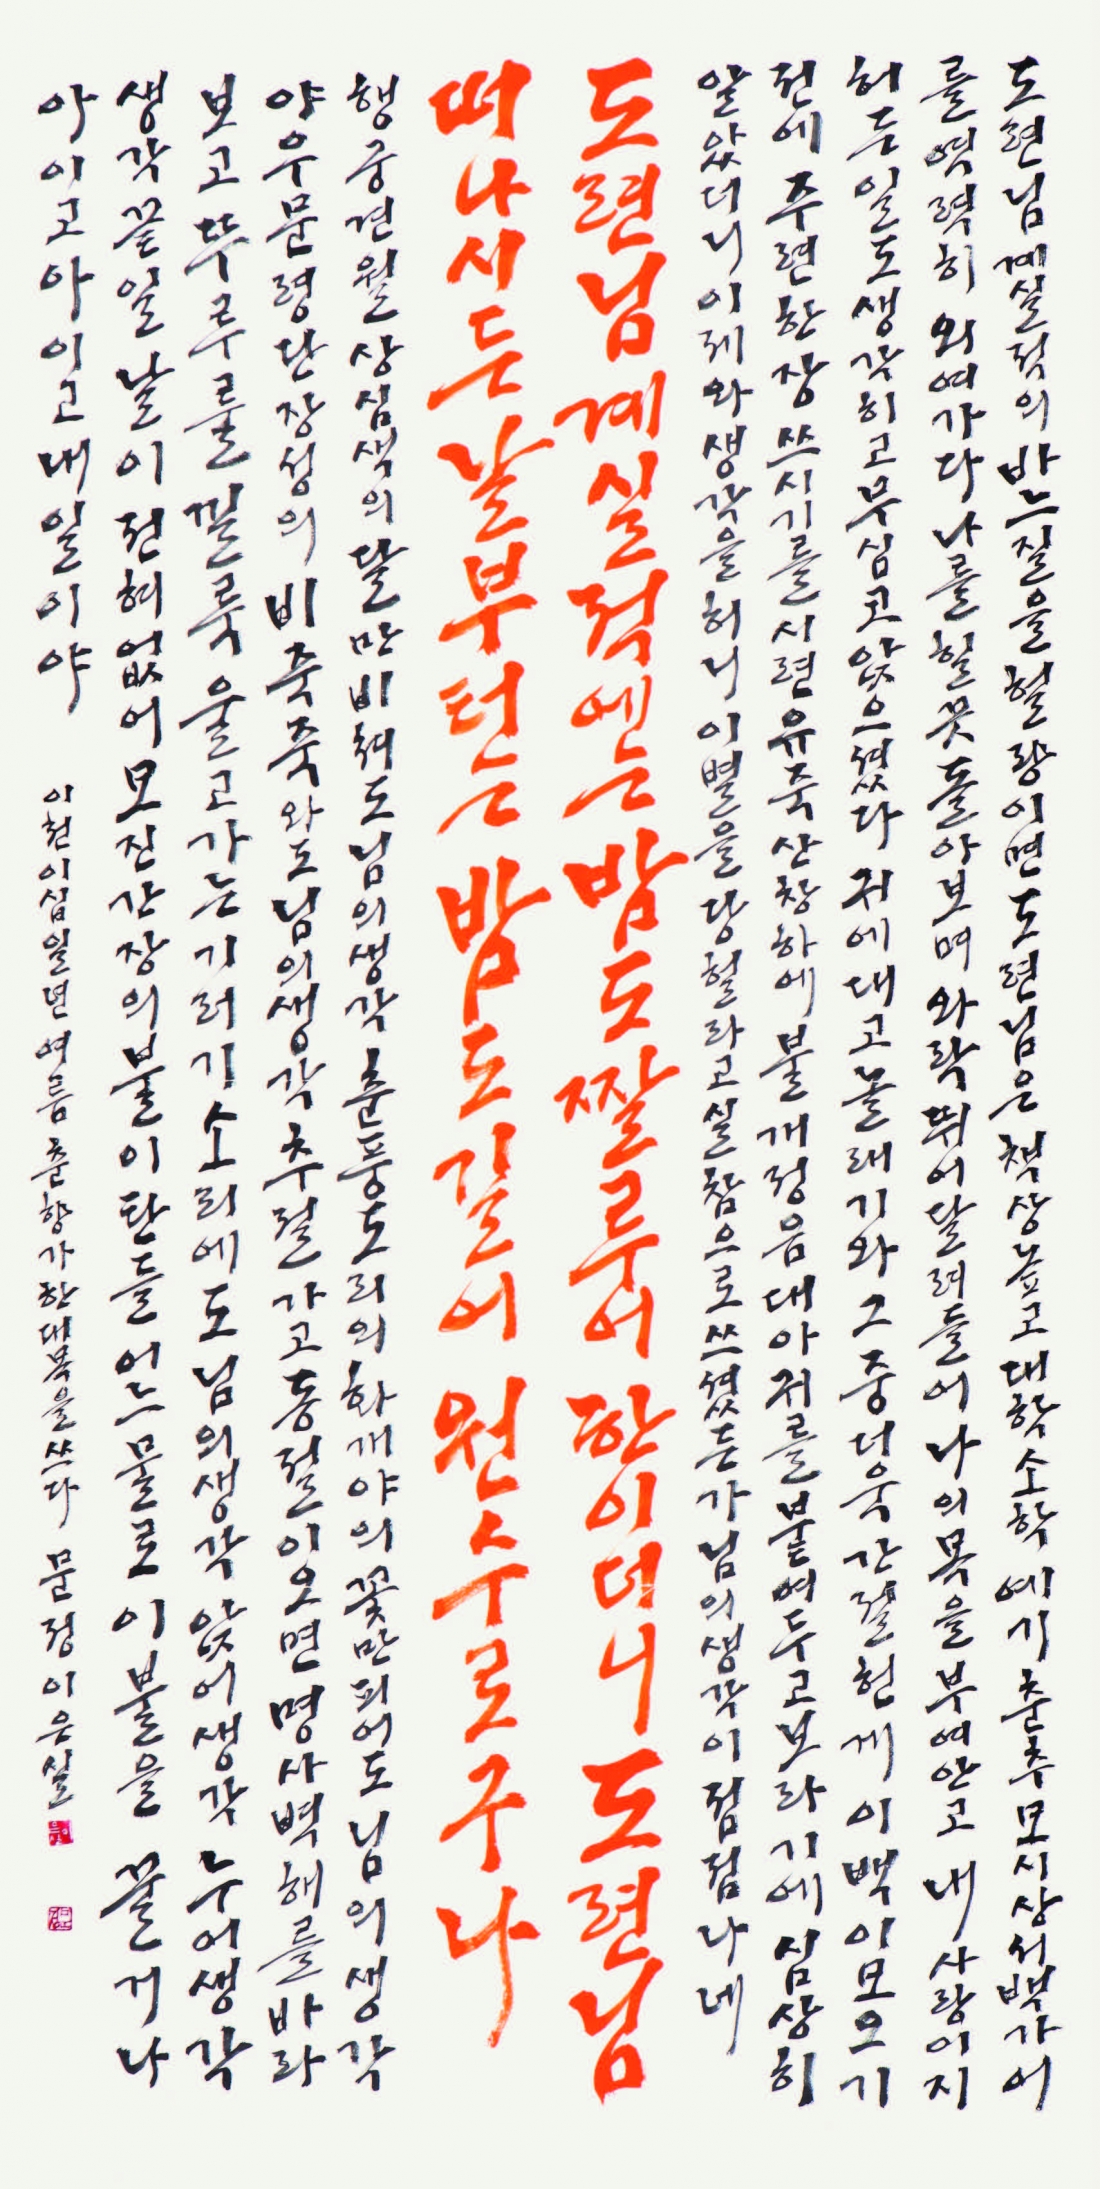 도련님 계실 적의 바느질을 헐 량이면 도련님은 책상 놓고 대학 소학 예기 춘추 모시 상서 백가어
를 역력히 외여가다 나를 힐끗 돌아보며 와락 뛰어 달려들어 나의 목을 부여안고 내 사랑이지
허든 일도 생각히고 부심고 앉으셨다 귀에 대고 놀래기와 그 중 더욱 간절헌 게 이백이 모오기
전에 주련 한 장 쓰시기를 시련유죽산창하에 불개정음대아귀를 붙여두고 보라기에 심상히
알았더니 이제 와 생각을 허니 이별을 당헐라고 실참으로 쓰셨든가 님의 생각이 점점 나네
도련님 계실 적에는 밤도 짤루어 한이더니 도련님
떠나시든 날부터는 밤도 길어 원수로구나
행궁견월상심색의 달만 비쳐도 님의 생각 춘풍도리화개야의 꽃만 피어도 님의 생각
야우문령단장성의 비 죽죽 와도 님의 생각 추절 가고 동절이 오면 명사벽해를 바라
보고 뚜루룰 낄룩 울고 가는 기러기 소리에도 님의 생각 앉어 생각 누어 생각
생각 끝일 날이 전혀 없어 모진 간장의 불이 탄들 어느 물로 이 불을 끌거나
아이고 아이고 내 일이야
이천이십일년 여름 춘향가 한 대목을 쓰다 문정 이은실